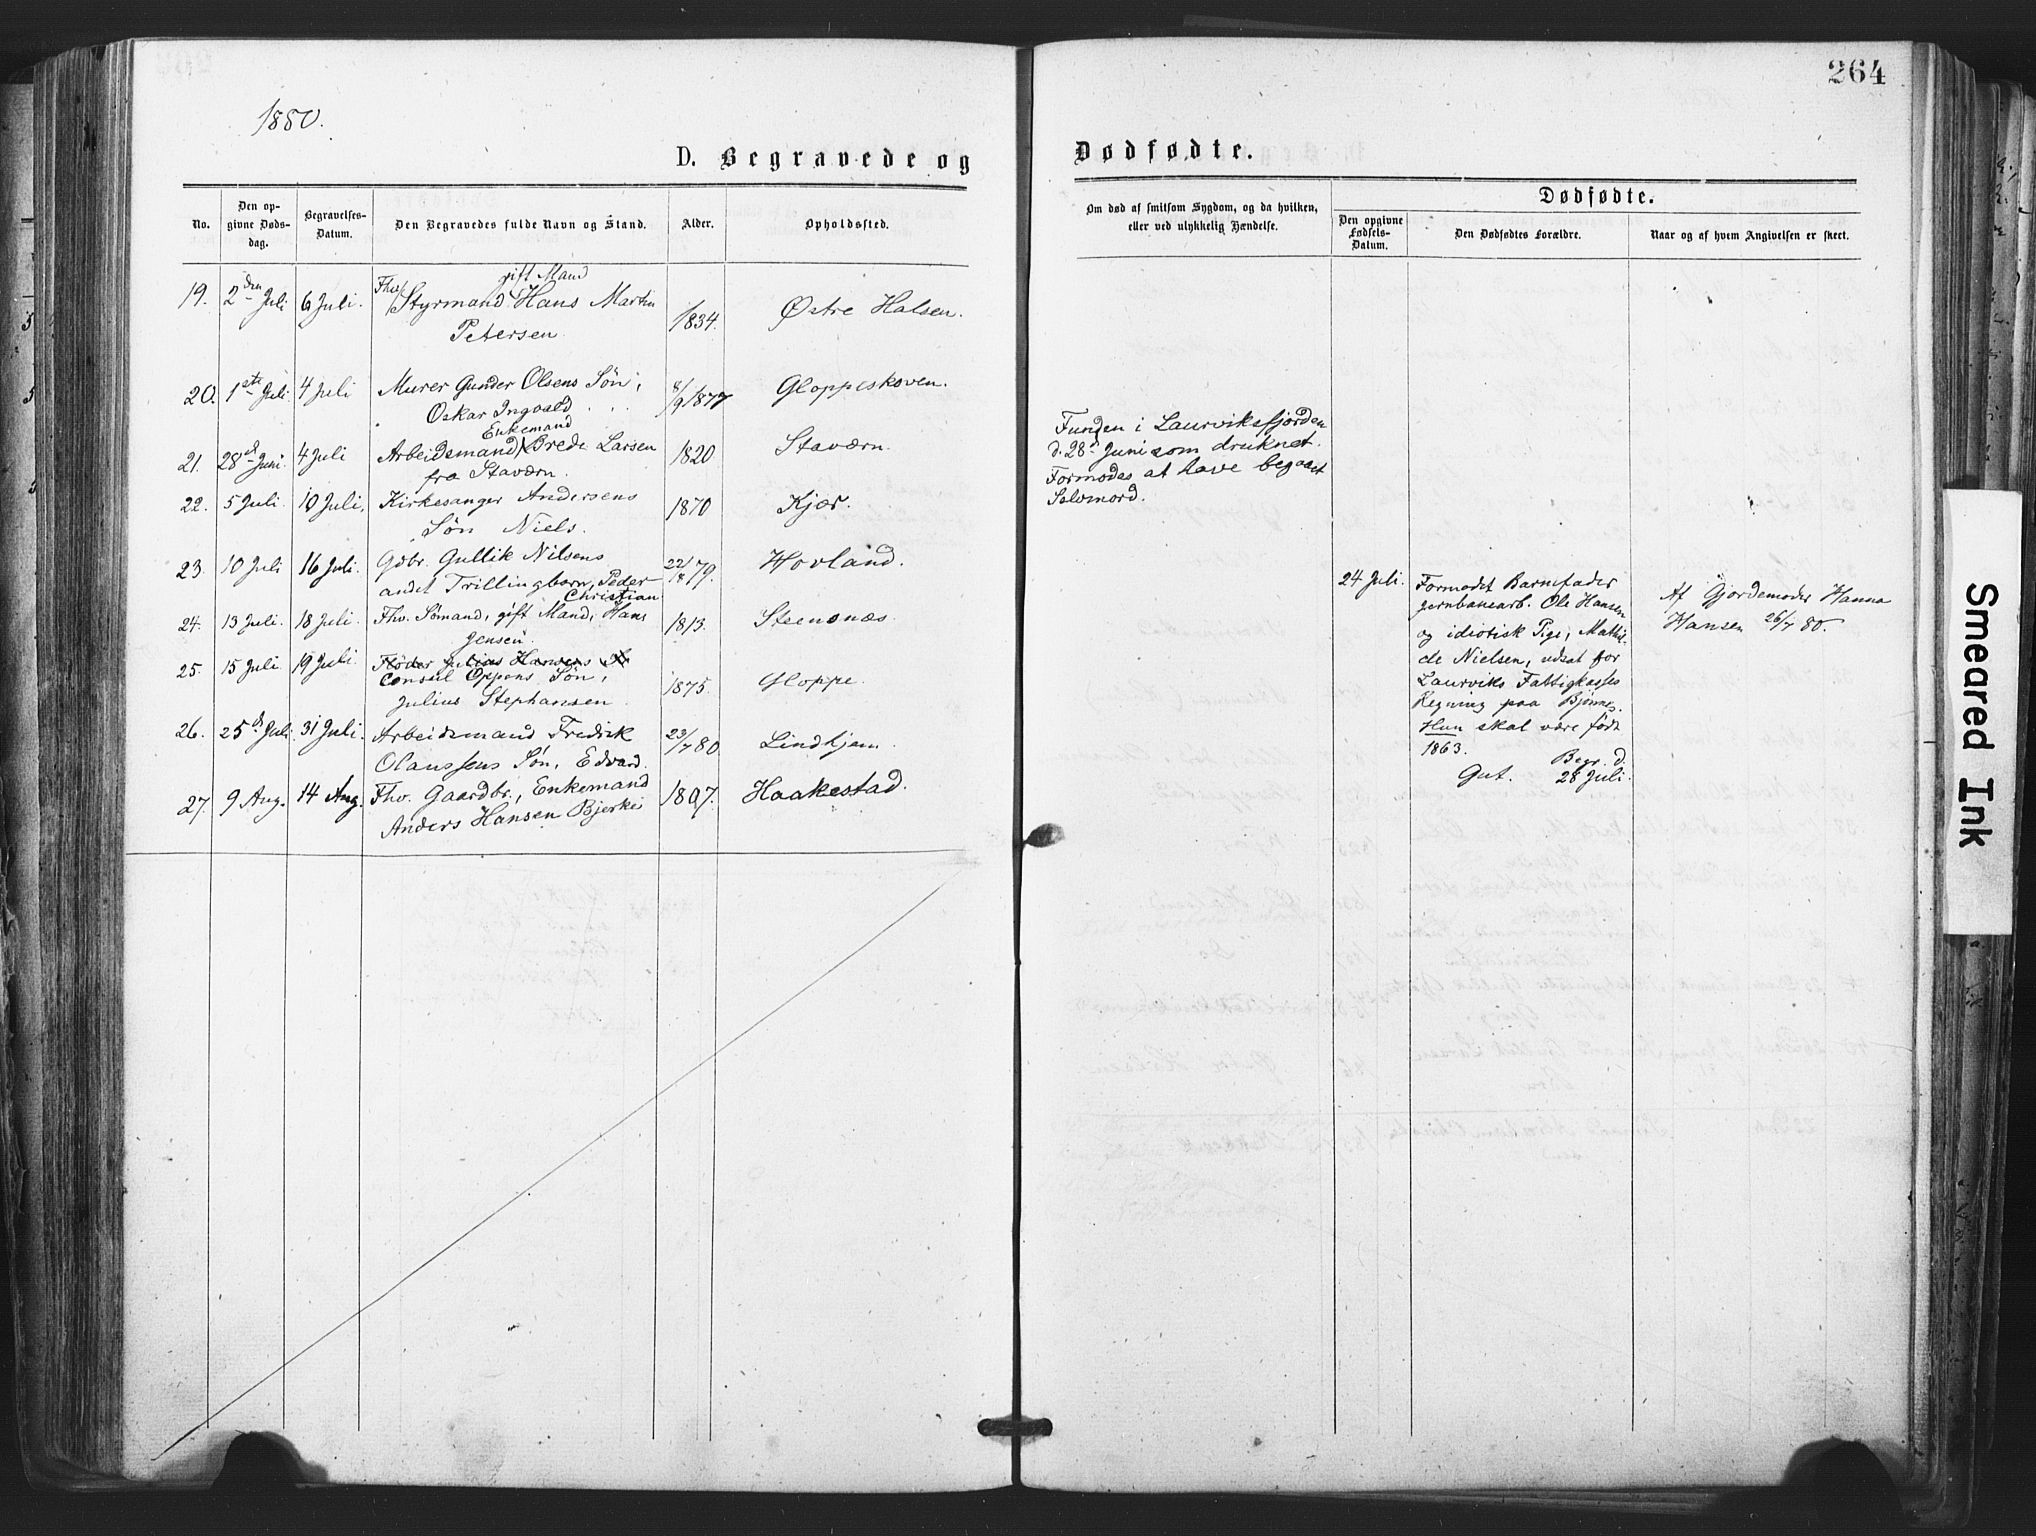 264
1880.
D. Begravede og
Dødfødte.
No.
Den opgivne Dødsdag.
Begravelses-Datum.
Den Begravedes fulde Navn og Stand.
Alder.
Opholdssted.
Om død af smitsom Sygdom, og da hvilken, eller ved ulykkelig Hændelse.
Dødfødte.
Den opgivne Fødsels-Datum.
Den Dødfødtes Forældre.
Naar og af hvem Angivelsen er skeet.
gift Mand
19. 2den Juli 6 Juli. Fhv. Styrmand Hans Martin 1834. Østre Halsen.
Petersen.
20. 1ste Juli 4 Juli Murer Gunder Olsens Søn, 8/9 1877 Gloppeskoven.
Oskar Ingvald
Enkemand
21. 28de Juni 4 Juli Arbeidsmand Brede Larsen 1820 Staværn.
fra Staværn.
Funden i Laurviksfjorden
d. 28de Juni som druknet.
Formodes at have begaaet
Selvmord.
22. 5 Juli 10 Juli. Kirkesanger Andersens 1870 Kjær.
Søn Niels.
23. 10 Juli 16 Juli. Gdbr. Gullik Nilsens 22/8 79. Hovland.
andet Trillingbarn, Peder
Christian
24. 13 Juli. 18 Juli. Fhv. Sømand, gift Mand, Hans 1813. Steensnæs.
Jensen.
25. 15 Juli 19 Juli. Fløder Julius Hansens
Consul Oppens Søn, 1875. Gloppe.
Julius Stephansen.
26. 25de Juli 31 Juli. Arbeidsmand Fredrik 23/7 80 Lindhjem.
Olaussens Søn, Edvard.
27. 9 Aug. 14 Aug. Fhv. Gaardbr., Enkemand 1807. Haakestad.
Anders Hansen Bjerke
24 Juli. Formodet Barnefader
Jernbanearb. Ole Hansen
og idiotisk Pige, Mathil-
de Nielsen, udsat for
Laurviks Fattigkasses
Regning paa Bjønnes.
Hun skal være født
1863. Begr. d.
Gut. 28 Juli.
Af Gjordemoder Hanna
Hansen 26/7 80.
Smeared Ink